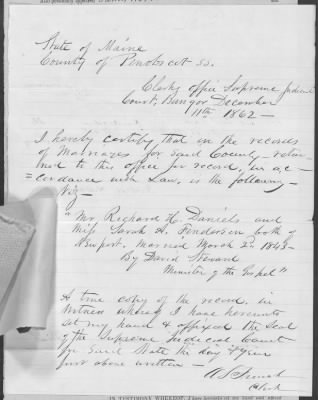 State of Maine
County of Penobscot ss.
Clerks office Supreme Judicial
Court, Bangor December
11th 1862 —
I hereby certify that in the records
of Marriages for said County retur-
ned to this office for record, in ac-
=cordance with Law, is the following
Viz —
"Mr. Richard H. Daniels and
Miss Sarah A. Fenderson both of
Newport. Married March 2d 1843 —
By David Steward
Minister of the Gospel"
A true copy of the record, in
Witness whereof I have hereunto
set my hand & affixed the Seal
of the Supreme Judicial Court
for said State the day & year
first above written —
Clerk
IN TESTIMONY WHEREOF, I have hereunto set my hand and